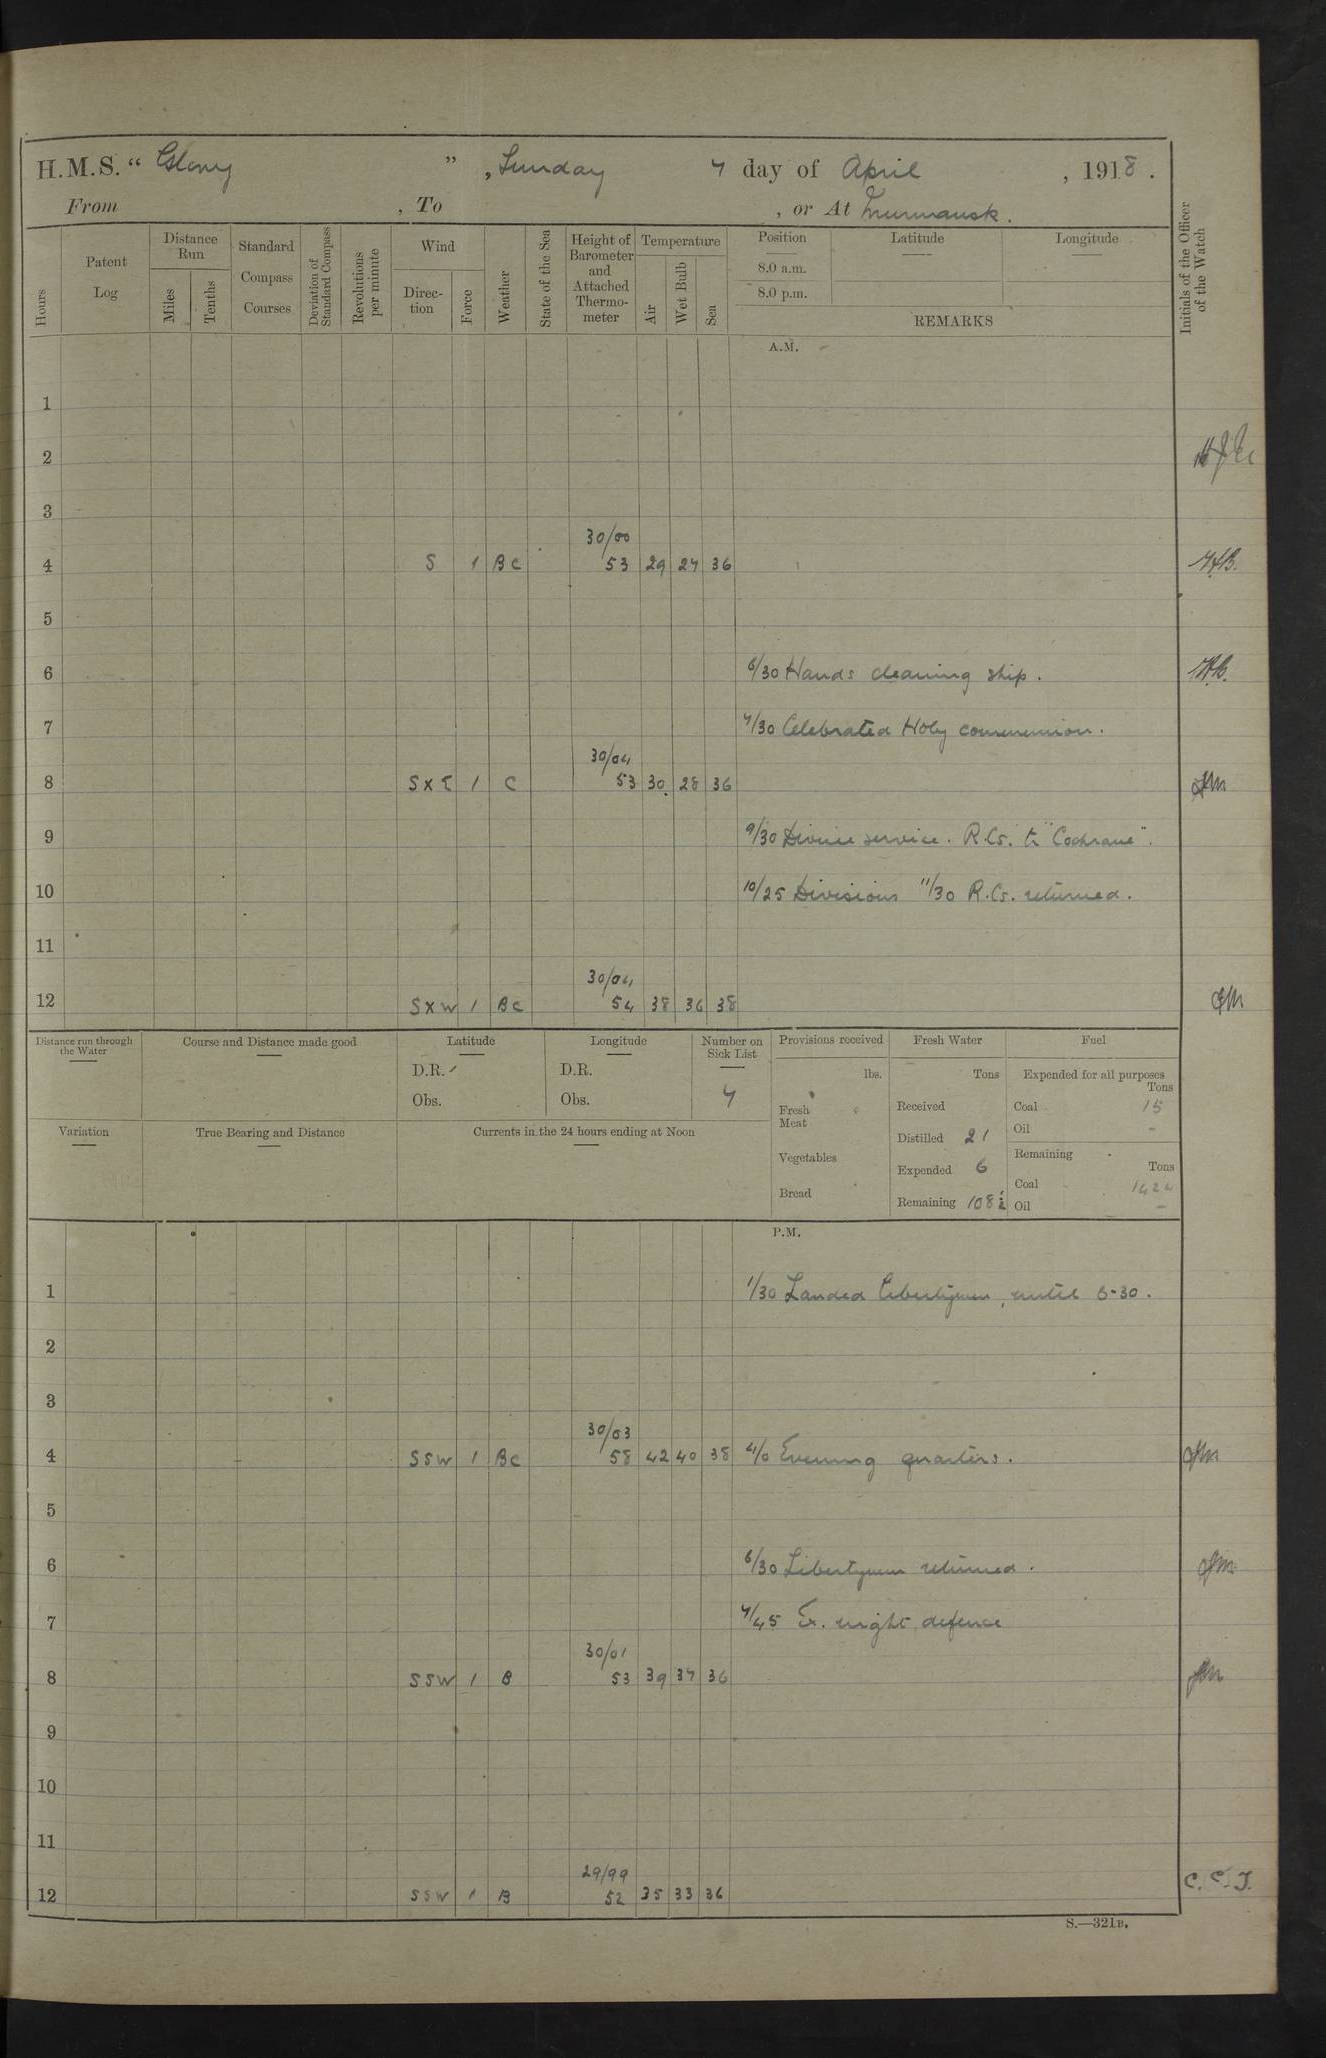 H.M.S. “ Glory ”, Sunday 7 day of April, 1918.
From , To , or At Murmansk.
Hours
Patent Log
Distance Run
Miles
Tenths
Standard Compass Courses
Deviation of Standard Compass
Revolutions per minute
Wind
Direction
Force
Weather
State of the Sea
Height of Barometer and Attached Thermometer
Temperature
Air
Wet Bulb
Sea
Position
8.0 a.m.
8.0 p.m.
Latitude
Longitude
REMARKS
Initials of the Officer of the Watch
A.M.
1
2
3
30/00
4 S 1 BC 53 29 27 36
5
6 6/30 Hands cleaning ship.
7 7/30 Celebrated Holy communion.
30/04
8 SXE 1 C 53 30 28 36
9 9/30 Divine service. R.Cs. to "Cochrane".
10 10/25 Divisions 11/30 R.Cs. returned.
11
30/04
12 SXW 1 BC 54 38 36 38
Distance run through the Water
Course and Distance made good
Latitude
D.R.
Obs.
Longitude
D.R.
Obs.
Number on Sick List
7
Variation
True Bearing and Distance
Currents in the 24 hours ending at Noon
Provisions received
lbs.
Fresh Meat
Vegetables
Bread
Fresh Water
Tons
Received
Distilled 21
Expended 6
Remaining 108½
Fuel
Expended for all purposes
Tons
Coal 15
Oil -
Remaining
Tons
Coal
Oil -
P.M.
1 1/30 Landed Libertymen, until 6-30.
2
3
30/03
4 SSW 1 BC 58 42 40 38 4/0 Evening quarters.
5
6 6/30 Libertymen returned.
7 7/45 Ex. night defence
30/01
8 SSW 1 B 53 39 37 36
9
10
11
29/99
12 SSW 1 B 52 35 33 36 C.C.J.
S.—321B.